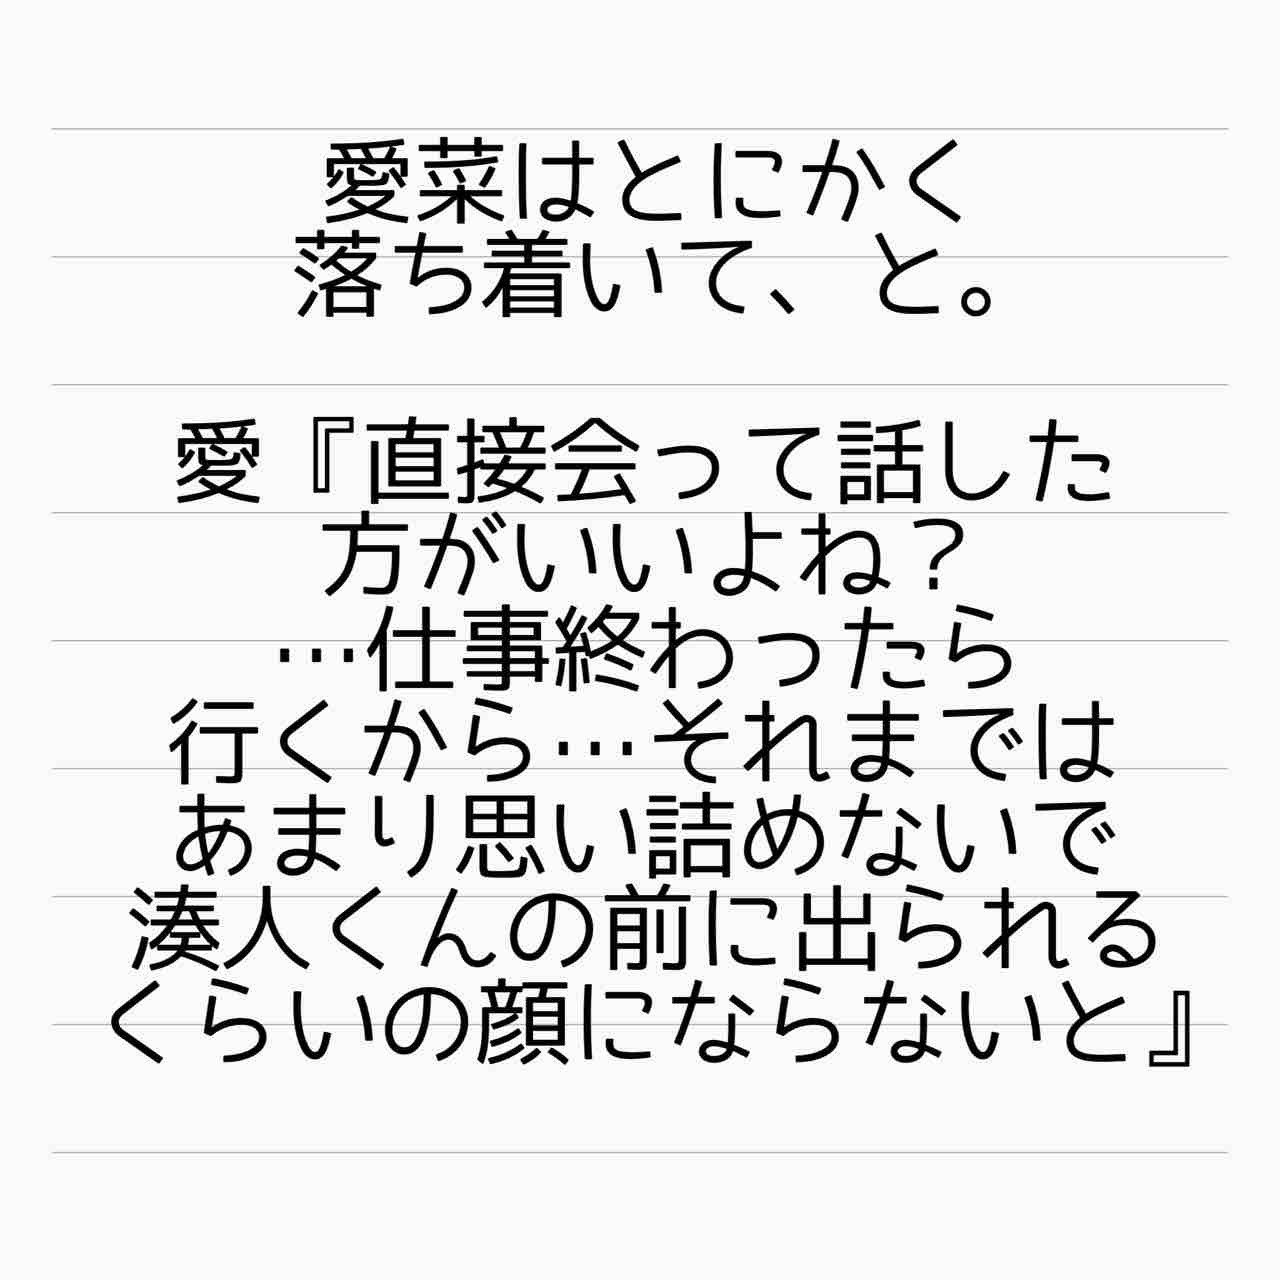 愛菜はとにかく
落ち着いて、と。
愛『直接会って話した
方がいいよね？
…仕事終わったら
行くから…それまでは
あまり思い詰めないで
湊人くんの前に出られる
くらいの顔にならないと』